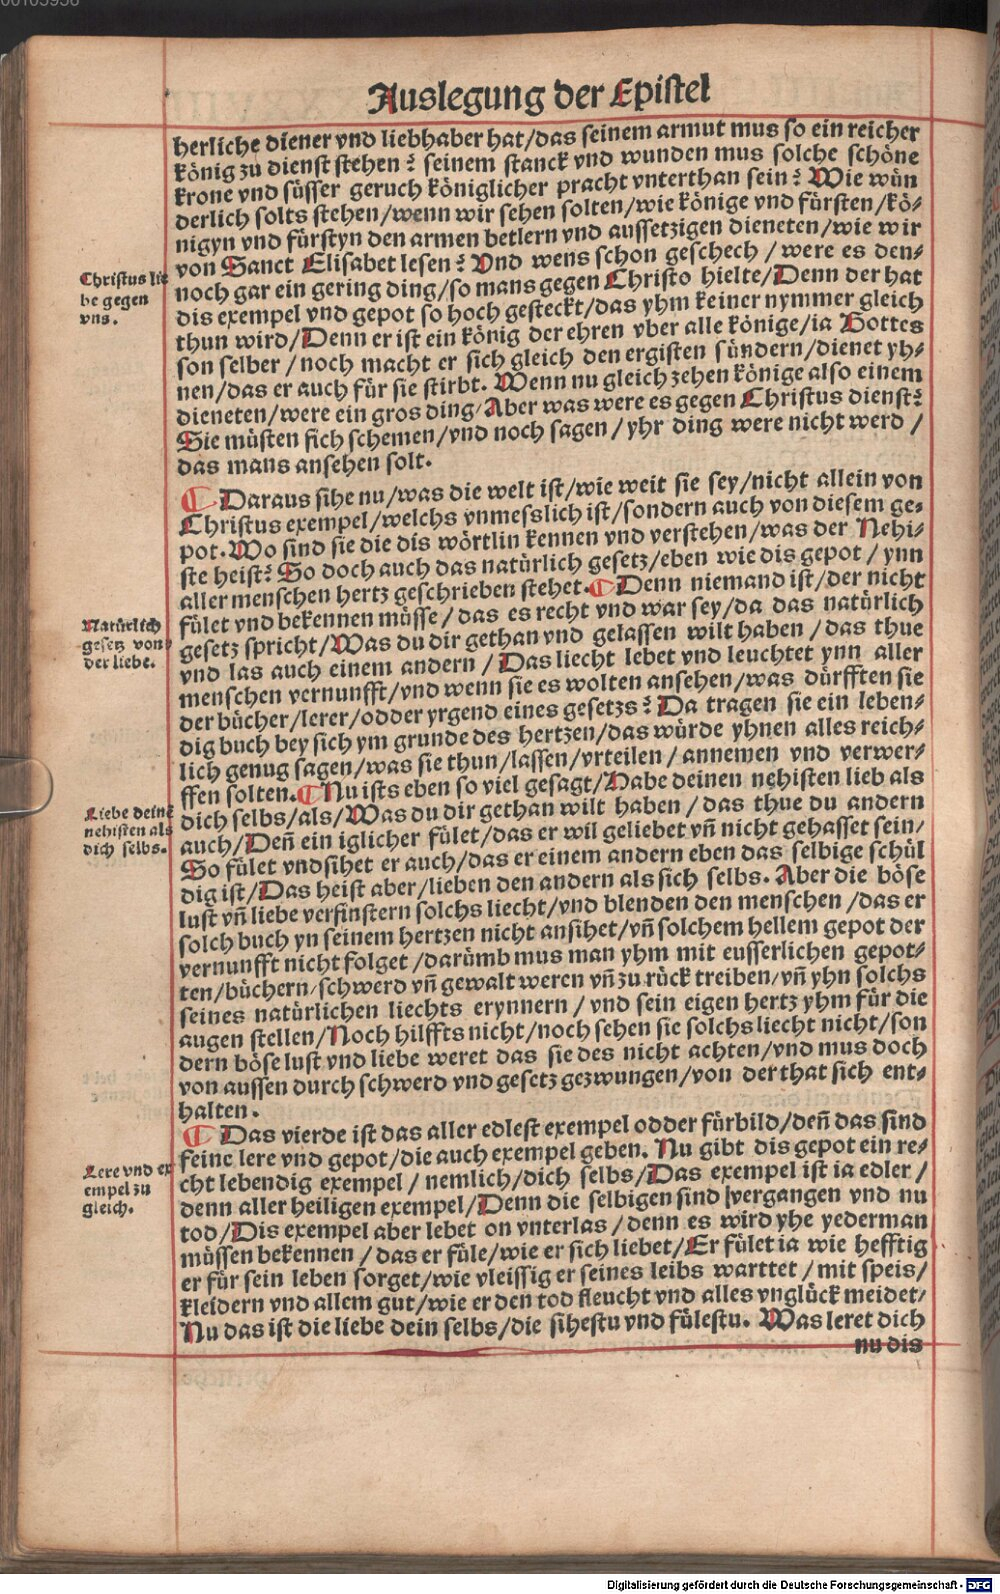 Auslegung der Epistel
herliche diener vnd liebhaber hat/das seinem armut mus so ein reicher
könig zu dienst stehen? seinem stanck vnd wunden mus solche schöne
krone vnd süsser geruch königlicher pracht vnterthan sein? Wie wün
derlich solts stehen/wenn wir sehen solten/wie könige vnd fürsten/kö-
nigyn vnd fürstyn den armen betlern vnd aussetzigen dieneten/wie wir
von Sanct Elisabet lesen? Vnd wens schon geschech/were es den-
noch gar ein gering ding/so mans gegen Christo hielte/Denn der hat
dis exempel vnd gepot so hoch gesteckt/das yhm keiner nymmer gleich
thun wird/Denn er ist ein könig der ehren vber alle könige/ia Gottes
son selber/noch macht er sich gleich den ergisten sündern/dienet yh-
nen/das er auch für sie stirbt. Wenn nu gleich zehen könige also einem
dieneten/were ein gros ding/Aber was were es gegen Christus dienst?
Sie müsten sich schemen/vnd noch sagen/yhr ding were nicht werd/
das mans ansehen solt.
Christus lie
be gegen
vns.
Daraus sihe nu/was die welt ist/wie weit sie sey/nicht allein von
Christus exempel/welchs vnmesslich ist/sondern auch von diesem ge-
pot. Wo sind sie die dis wörtlin kennen vnd verstehen/was der Nehi-
ste heist? So doch auch das natürlich gesetz/eben wie dis gepot/ynn
aller menschen hertz geschrieben stehet. Denn niemand ist/der nicht
fület vnd bekennen müsse/das es recht vnd war sey/da das natürlich
gesetz spricht/Was du dir gethan vnd gelassen wilt haben/das thue
vnd las auch einem andern/Das liecht lebet vnd leuchtet ynn aller
menschen vernunfft/vnd wenn sie es wolten ansehen/was dürfften sie
der bücher/lerer/odder yrgend eines gesetzs? Da tragen sie ein leben-
dig buch bey sich ym grunde des hertzen/das würde yhnen alles reich-
lich genug sagen/was sie thun/lassen/vrteilen/annemen vnd verwer-
ffen solten. Nu ists eben so viel gesagt/Habe deinen nehisten lieb als
dich selbs/als/Was du dir gethan wilt haben/das thue du andern
auch/Deñ ein iglicher fület/das er wil geliebet vñ nicht gehasset sein/
So fület vnd sihet er auch/das er einem andern eben das selbige schül
dig ist/Das heist aber/lieben den andern als sich selbs. Aber die böse
lust vñ liebe verfinstern solchs liecht/vnd blenden den menschen/das er
solch buch yn seinem hertzen nicht ansihet/vñ solchem hellem gepot der
vernunfft nicht folget/darümb mus man yhm mit eusserlichen gepot-
ten/büchern/schwerd vñ gewalt weren vñ zu rück treiben/vñ yhn solchs
seines natürlichen liechts erynnern/vnd sein eigen hertz yhm für die
augen stellen/Noch hilffts nicht/noch sehen sie solchs liecht nicht/son
dern böse lust vnd liebe weret das sie des nicht achten/vnd mus doch
von aussen durch schwerd vnd gesetz gezwungen/von der that sich ent-
halten.
Natürlich
gesetz von
der liebe.
Liebe deinē
nehisten als
dich selbs.
Das vierde ist das aller edlest exempel odder fürbild/deñ das sind
feine lere vnd gepot/die auch exempel geben. Nu gibt dis gepot ein re-
cht lebendig exempel/nemlich/dich selbs/Das exempel ist ia edler/
denn aller heiligen exempel/Denn die selbigen sind vergangen vnd nu
tod/Dis exempel aber lebet on vnterlas/denn es wird yhe yederman
müssen bekennen/das er füle/wie er sich liebet/Er fület ia wie hefftig
er für sein leben sorget/wie vleissig er seines leibs warttet/mit speis/
kleidern vnd allem gut/wie er den tod fleucht vnd alles vnglück meidet/
Nu das ist die liebe dein selbs/die sihestu vnd fülestu. Was leret dich
nu dis
Lere vnd ex
empel zu
gleich.
Digitalisierung gefördert durch die Deutsche Forschungsgemeinschaft - DFG